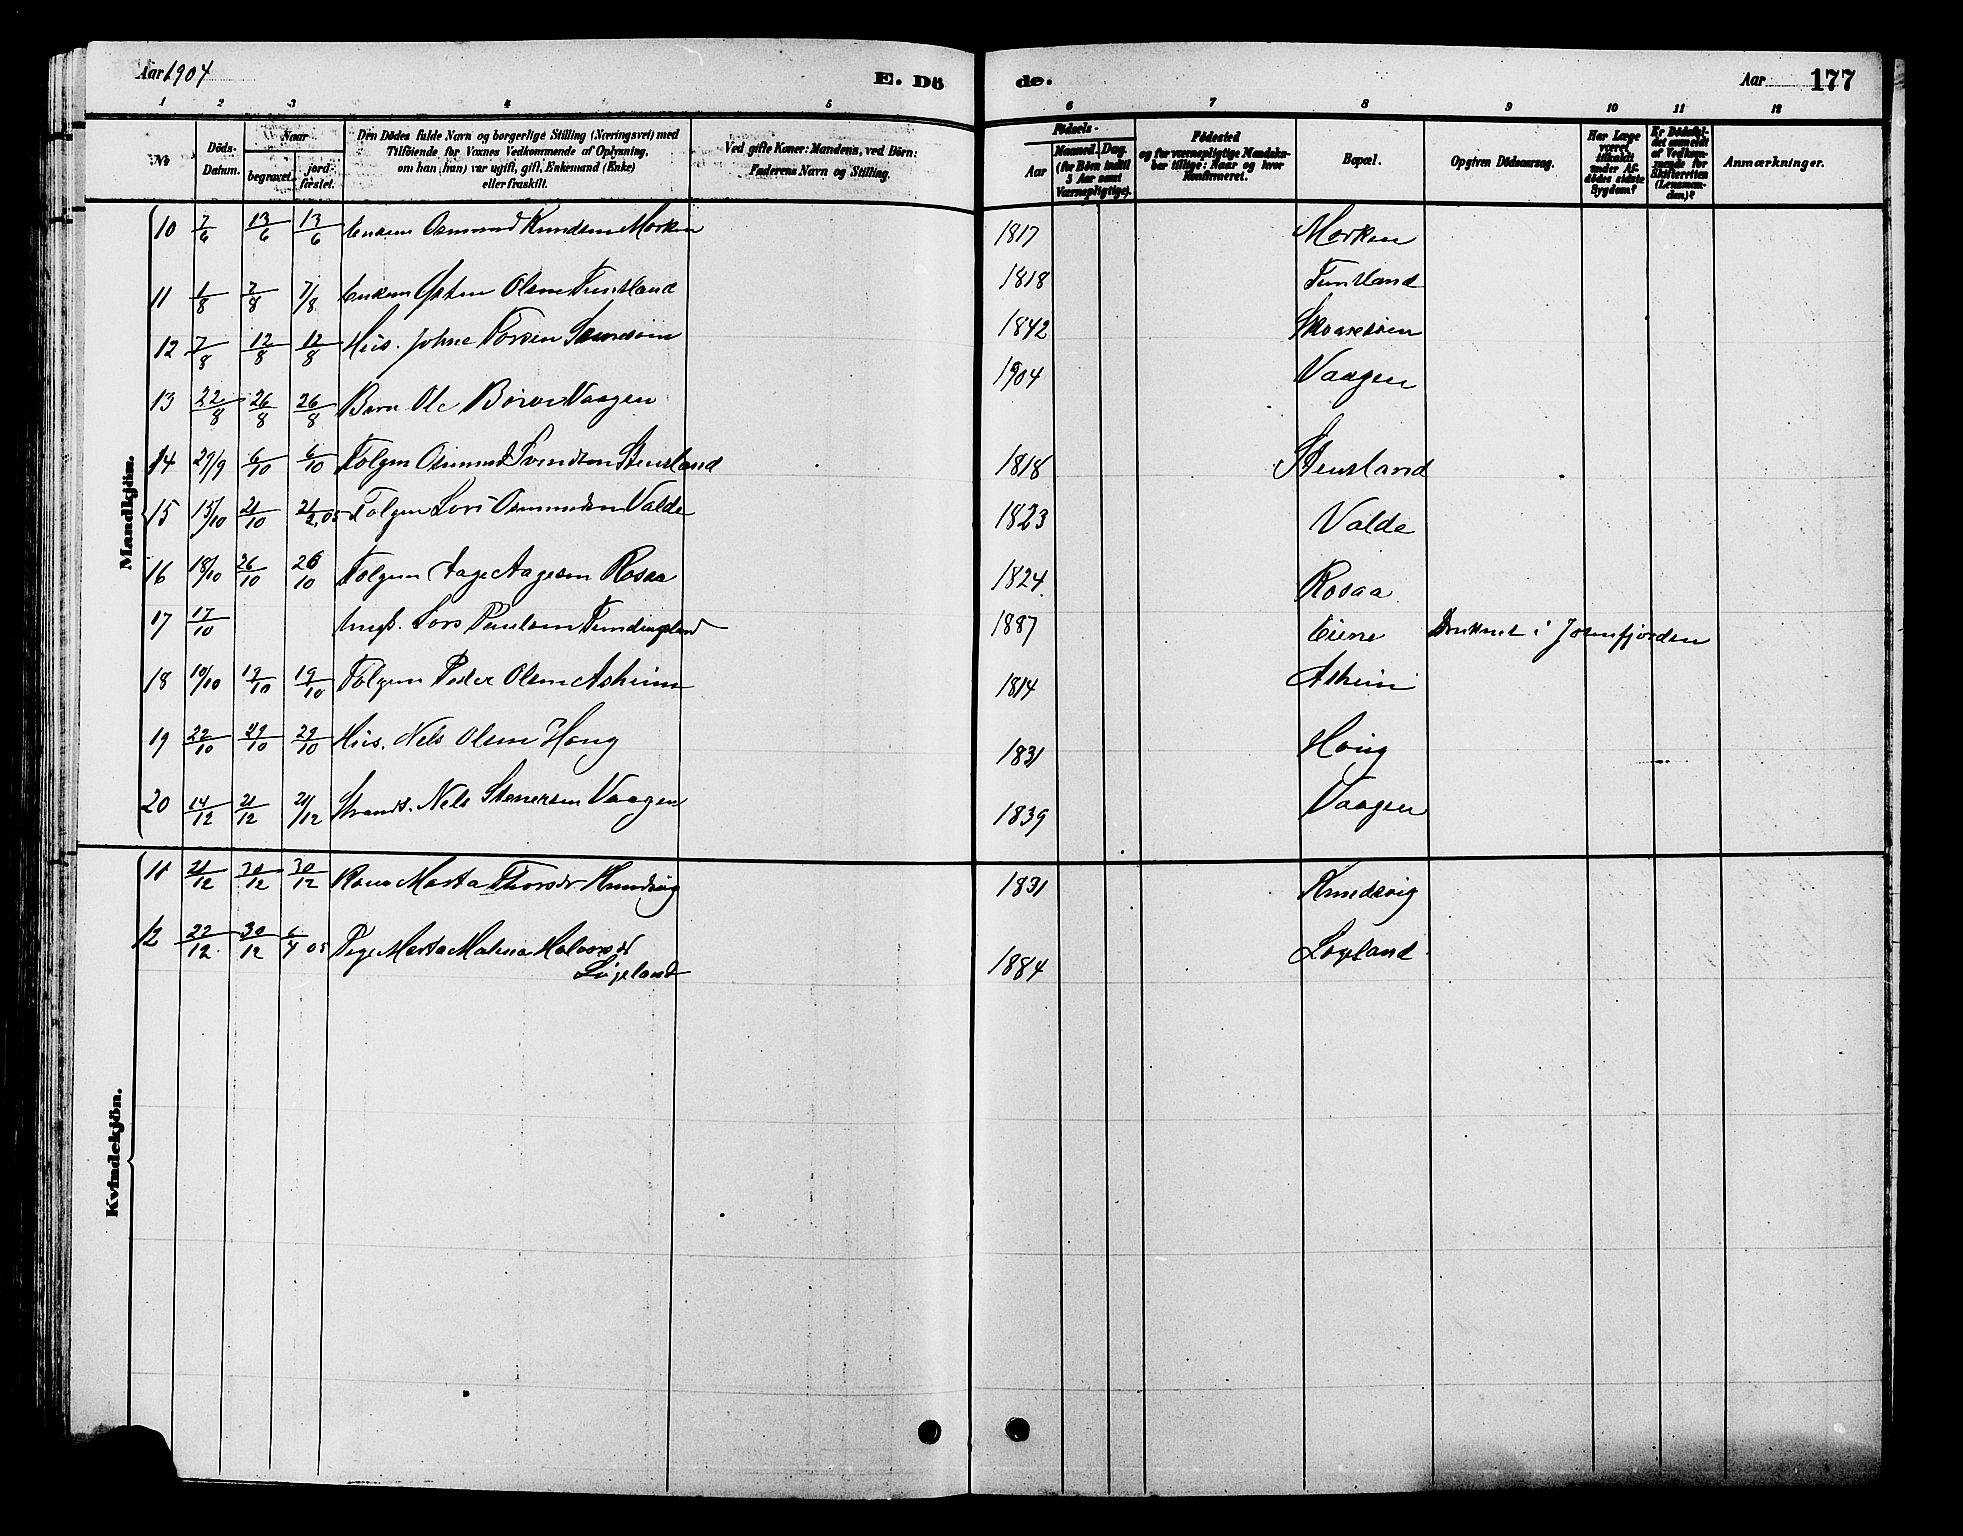 Aar 1904
E. Dö
de.
Aar
177
1 2 3 4 5 6 7 8 9 10 11 12
No
Döds-
Datum.
Naar
begravet.
jord-
fæstet.
Den Dödes fulde Navn og borgerlige Stilling (Næringsvei) med
Tilföiende for Voxnes Vedkommende af Oplysning,
om han (hun) var ugift, gift, Enkemand (Enke)
eller fraskilt.
Ved gifte Koner: Mandens, ved Börn:
Faderens Navn og Stilling.
Födsels-
Aar
Maaned. Dag.
(for Börn indtil
5 Aar samt
Værnepligtige).
Födested
og for værnepligtige Mandska-
ber tillige: Naar og hvor
Konfirmeret.
Bopæl.
Opgiven Dödsaarsag.
Har Læge
været
tilkaldt
under Af-
dödes sidste
Sygdom?
Er Dödsfal-
det anmeldt
af Vedkom-
mende for
Skifteretten
(Lensman-
den)?
Anmærkninger.
Mandkjön.
10 7/6 13/6 13/6 Enkem Osmund Knudsen Morken 1817 Morken
11 1/8 7/8 7/8 Enkem Østen Olsen 1818
12 7/8 12/8 12/8 Hus. Johne 1842
13 22/8 26/8 26/8 Barn Ole Vaagen 1904 Vaagen
14 29/9 6/10 6/10 Folgm Osmund Svendsen Stensland 1818 Stensland
15 15/10 21/10 21/2 05 Folgm Lars Osmundsen Valde 1823 Valde
16 18/10 26/10 26/10 Folgm Aage Aagesen Rosaa 1824. Rosaa
17 17/10 Ungk. Lars Paulsen 1887 Eiene Druknet i Jøsenfjorden
18 10/10 19/10 19/10 Folgm Peder Olsen Asheim 1814 Asheim
19 22/10 29/10 29/10 Hus. Nels Olsen Houg 1831 Houg
20 14/12 21/12 21/12 Strands. Nels Stenersen Vaagen 1839 Vaagen
Kvindekjön.
11 21/12 30/12 30/12 Kone Marta Thorsdr Knudsvig 1831 Knudsvig
12 22/12. 30/12 6/4 05 Pige Marta Malena Halvorsdr
Løgeland 1884 Løgeland